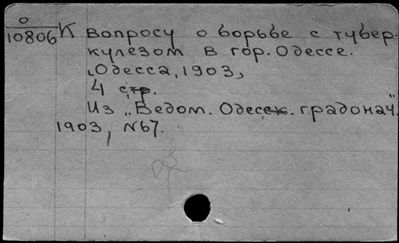 О
10806 К вопросу о борьбе с тубер-
кулезом в гор. Одессе.
Одесса, 1903,
4 стр.
Из „Ведом. Одесск. градонач."
1903, №67.